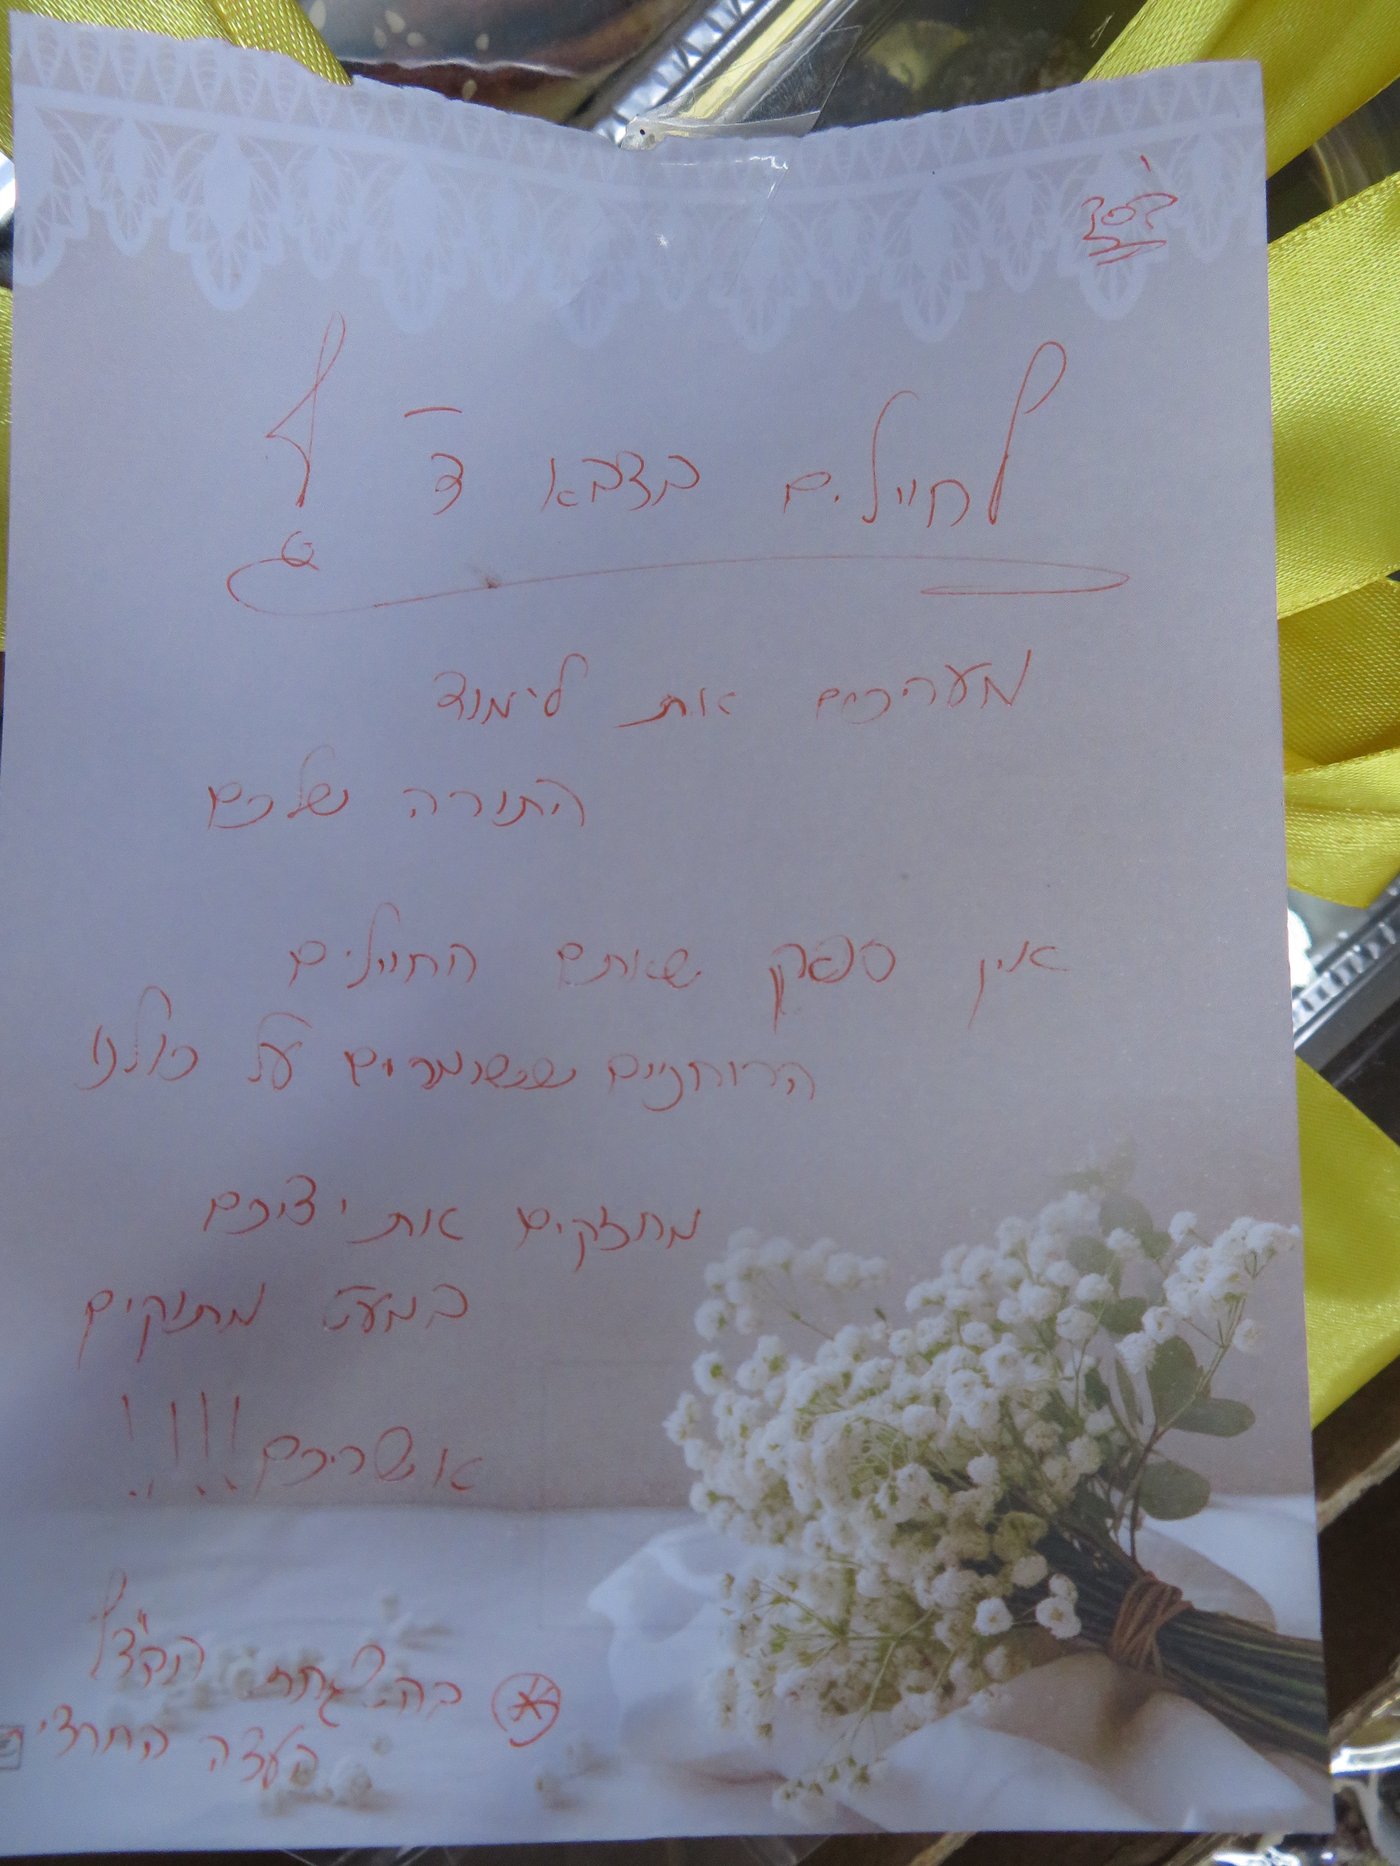 בס"ד
לחיילים בצבא ה'
מעריכים את לימוד
התורה שלכם
אין ספק שאתם החיילים
הרוחניים ששומרים על כולנו
מחזקים את ידיכם
במעט מתוקים
אשריכם!!!!
בהשגחת הבד"ץ
העדה החרדי